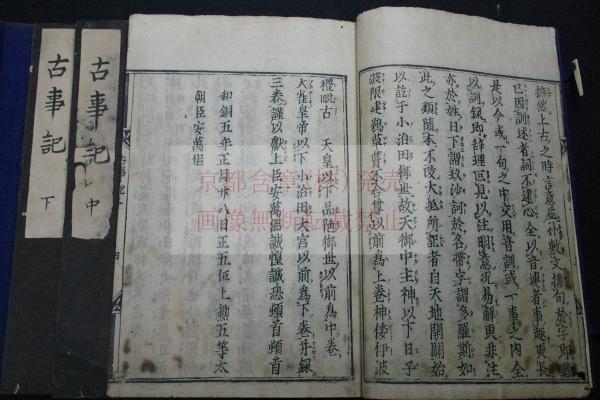 然上古之時言意並朴敷文搆句於字即難
已因訓述者詞不逮心全以音連者事趣更長
是以今或一句之中交用音訓或一事之內全
以訓録即辞理叵見以注明意況易解更非注
亦於姓日下謂玖沙訶於名帶字謂多羅斯如
此之類隨本不改大抵所記者自天地開闢始
以訖于小治田御世故天御中主神以下日子
波限建鵜草葺不合尊以前爲上卷神倭伊波
禮毗古 天皇以下品陁御世以前爲中卷
大雀皇帝以下小治田大宮以前爲下卷并録
三卷謹以獻上臣安萬侶誠惶誠恐頓首頓首
和銅五年正月廿八日正五位上勲五等太
朝臣安萬侶
古事記 中
古事記 下
京都含章(株)発売
画像無断転載禁止